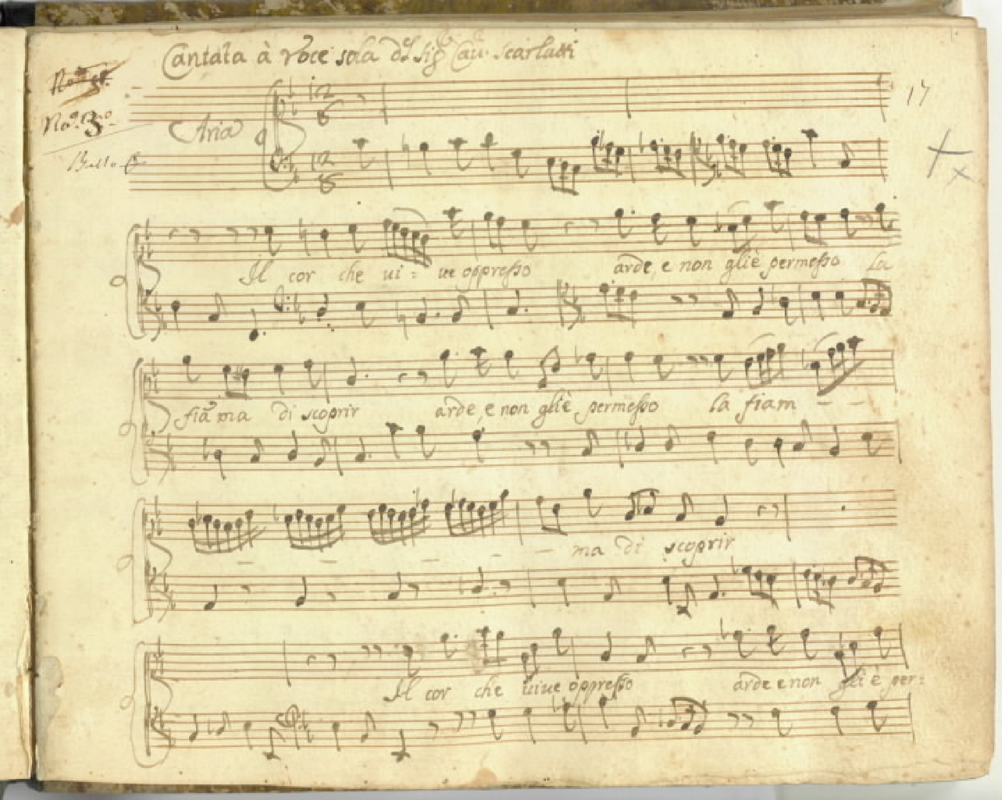 Cantata à Voce sola del Sig.r Cau. Scarlatti
No. 3o
17
Aria
12 8
12 8
Bello
Il cor che ui = ue oppresso arde, e non gliè permesso La
fiãma di scoprir arde, e non gliè permesso la fiam - -
- - - - ma di scoprir
Il cor che uiue oppresso arde e non gli è per=